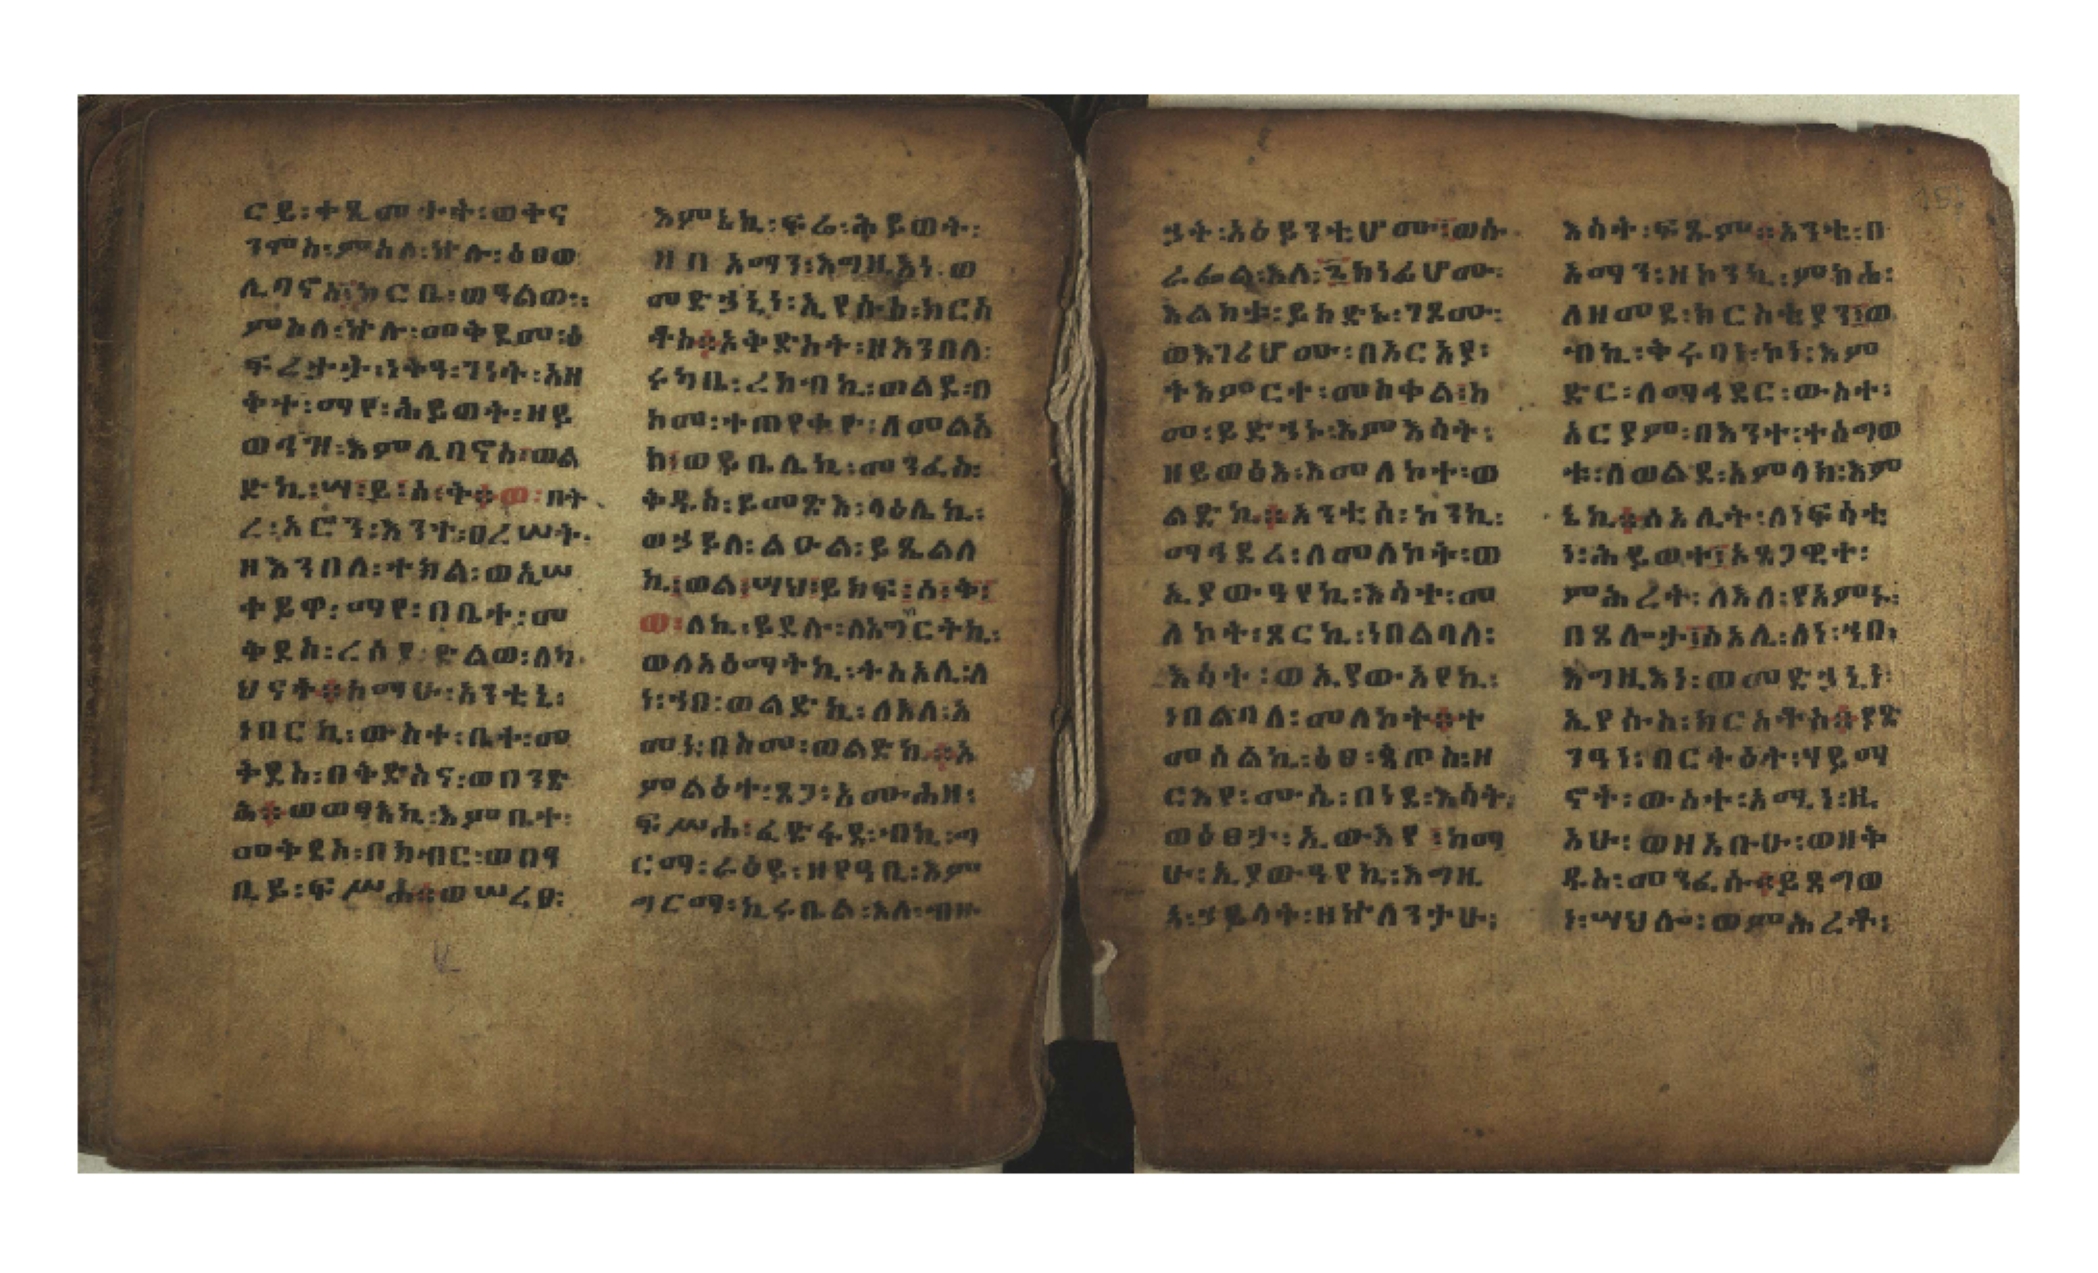 ርይ፡ተጺመታት፡ወተና
ንሞስ፡ምስለ፡ኵሉ፡ዕፀወ
ሊባኖስ፡ከርቤ፡ወዓልው፡፡
ምስለ፡ኵሉ፡መቅደመ፡ዕ
ፍረታት፡ነቅዓ፡ገነት፡አዘ
ቅተ፡ማየ፡ሕይወት፡ዘይ
ወኅዝ፡እምሊባኖስ፡ወል
ድኪ፡ሣ፡ይ፡ስ፡ት፨ወ፡በት
ረ፡አሮን፡እንተ፡ፀረሠት፡
ዘእንበለ፡ተክል፡ወኢሠ
ተይዋ፡ማየ፡በቤተ፡መ
ቅደስ፡ረሰያ፡ድልወ፡ለካ
ህናት፨ከማሁ፡አንቲኒ፡
ነበርኪ፡ውስተ፡ቤተ፡መ
ቅደስ፡በቅድስና፡ወበንጽ
ሕ፨ወወፃእኪ፡እምቤተ፡
መቅደስ፡በክብር፡ወበዓ
ቢይ፡ፍሥሐ፨ወሠረፀ፡
እምኔኪ፡ፍሬ፡ሕይወት፡
ዘበአማን፡እግዚእነ፡ወ
መድኃኒነ፡ኢየሱስ፡ክርስ
ቶስ፨አቅድአት፡ዘእንበለ፡
ሩካቤ፡ረከብኪ፡ወልደ፡በ
ከመ፡ተጠየቀዮ፡ለመልአ
ክ፡ወይቤለኪ፡መንፈስ፡
ቅዱስ፡ይመጽእ፡ላዕሌኪ፡
ወኃይለ፡ልዑል፡ይጼልለ
ኪ፡ወል፡ሣህ፡ይክፍ፡ሰ፡ት፡
ወ፡ለኪ፡ይደሉ፡ለአግብርትኪ፡
ወለአዕማትኪ፡ትስአሊ፡ለ
ነ፡ኀበ፡ወልድኪ፡ለእለ፡አ
መነ፡በስመ፡ወልድኪ፨አ
ምልዕተ፡ጸጋ፡እሙሕዘ፡
ፍሥሐ፡ፈድፋደ፡ብኪ፡ግ
ርማ፡ራዕይ፡ዘየዓቢ፡እም
ግርማ፡ኪሩቤል፡እለ፡ብዙ
ኃት፡አዕይንቲሆሙ፡ወሱ
ራፌል፡እለ፡፮ክነፊሆሙ፡
እልክቱ፡ይከድኑ፡ገጾሙ፡
ወእገሪሆሙ፡በአርአያ፡
ትእምርተ፡መስቀል፡ከ
መ፡ይድኀኑ፡እምእሳት፡
ዘይወፅእ፡እመለኮት፡ወ
ልድኪ፨አንቲሰ፡ከንኪ፡
ማኅደረ፡ለመለኮት፡ወ
ኢያውዓየኪ፡እሳተ፡መ
ለኮት፡ጾርኪ፡ነበልባለ፡
እሳት፡ወኢየውአየኪ፡
ነበልባለ፡መለኮት፨ተ
መሰልኪ፡ዕፀ፡ጳጦስ፡ዘ
ርእየ፡ሙሴ፡በነደ፡እሳት፡
ወዕፀታ፡ኢውእየ፡ከማ
ሁ፡ኢያውዓየኪ፡እግዚ
አ፡ኃይላት፡ዘኵለንታሁ፡
እሳት፡ፍጹም፨አንቲ፡በ
አማን፡ዘኮንኪ፡ምክሐ፡
ለዘመደ፡ክርስቲያን፡ወ
ብኪ፡ቅሩባነ፡ኮነ፡እም
ድር፡ለማኅደር፡ውስተ፡
አርያም፡በእንተ፡ተሰግወ
ቱ፡ለወልደ፡አምላክ፡እም
ኔኪ፨ሰአሊት፡ለነፍሳቲ
ነ፡ሕይወተ፡አጸጋዊተ፡
ምሕረት፡ለእለ፡የአምኑ፡
በጸሎታ፡ሰአሊ፡ለነ፡ኀበ፡
እግዚእነ፡ወመድኃኒነ፡
ኢየሱስ፡ክርስቶስ፨ያጽ
ንዓነ፡በርትዕት፡ሃይማ
ኖት፡ውስተ፡አሚነ፡ዚ
አሁ፡ወዘአቡሁ፡ወዘቅ
ዱስ፡መንፈሱ፨ይጸግወ
ነ፡ሣህሎ፡ወምሕረቶ፡